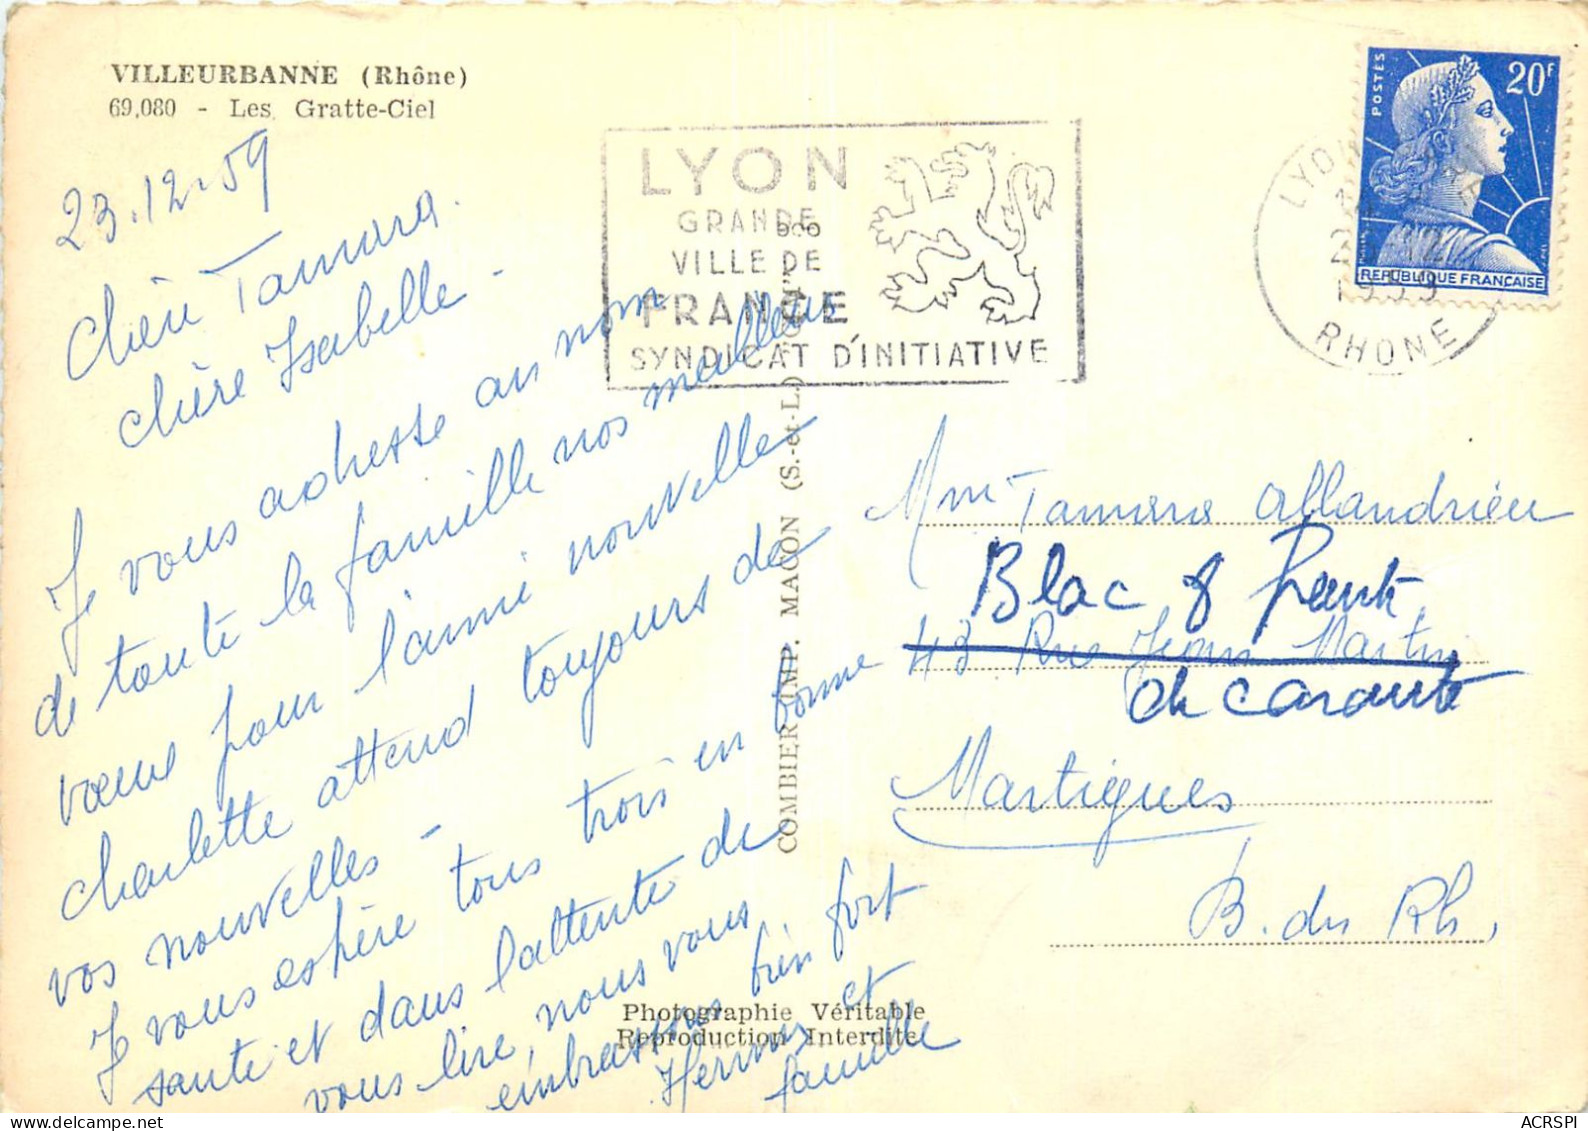 VILLEURBANNE (Rhône)
69,080 - Les Gratte-Ciel
23.12-59
Chère Tamara.
chère Isabelle -
Je vous adresse au nom
de toute la famille nos meilleurs
vœux pour l'année nouvelle
Charlette attend toujours de
vos nouvelles -
Je vous espère tous trois en bonne
santé et dans l'attente de
vous lire, nous vous
embrassons bien fort
et
famille
LYON
GRANDE
VILLE DE
FRANCE
SYNDICAT D'INITIATIVE
POSTES
20F
REPUBLIQUE FRANÇAISE
LYON
1959
RHONE
COMBIER IMP. MACON (S.-et-L.)
Mme Tamara Allandrieu
Blac 8
48 Rue Jean Martin
de Caronte
Martigues
B. du Rh,
Photographie Véritable
Reproduction Interdite
ACRSPI